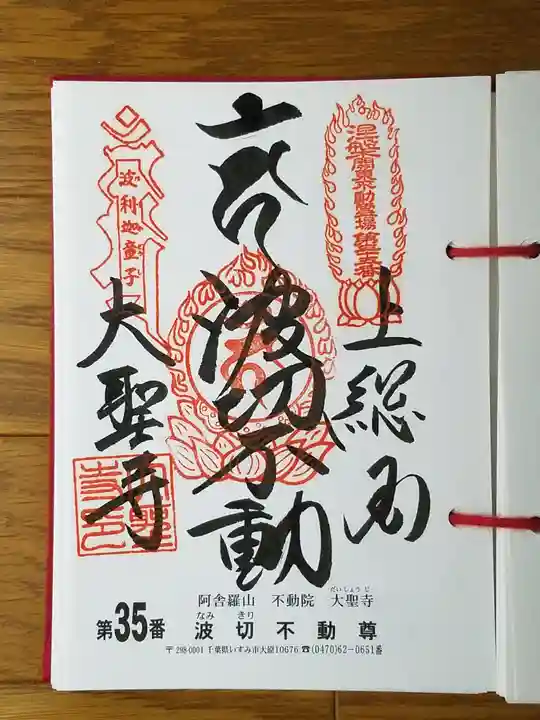 涅槃 関東不動霊場 第三十五番
上総国
波切不動
波利迦童子
大聖寺
阿舎羅山 不動院 大聖寺
だいしょうじ
なみ きり
第35番 波切不動尊
〒298-0001 千葉県いすみ市大原10676 ☎(0470)62-0651番